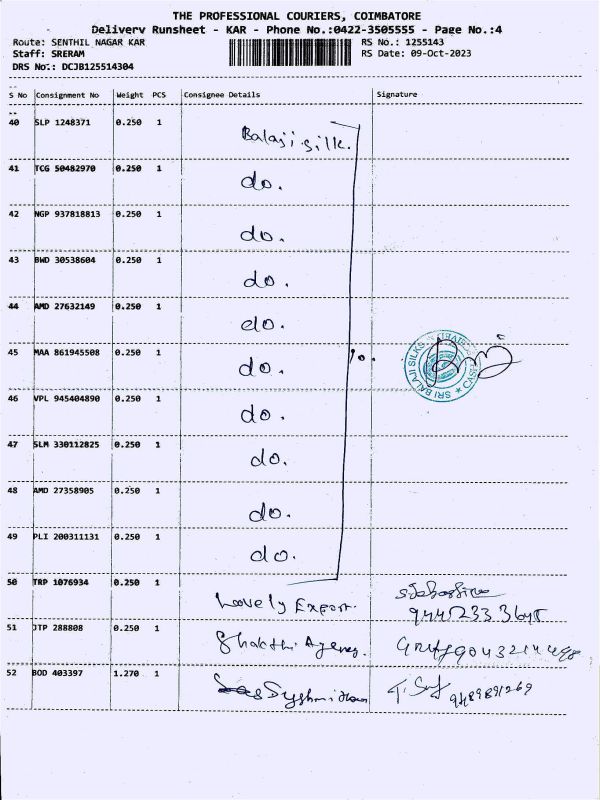 THE PROFESSIONAL COURIERS, COIMBATORE
Delivery Runsheet - KAR - Phone No.:0422-3505555 - Page No.:4
Route: SENTHIL NAGAR KAR RS No.: 1255143
Staff: SRERAM RS Date: 09-Oct-2023
DRS No.: DCJB125514304
S No Consignment No Weight PCS Consignee Details Signature
40 SLP 1248371 0.250 1 Balaji silk.
41 TCG 50482970 0.250 1 do.
42 NGP 937818813 0.250 1 do.
43 BWD 30538604 0.250 1 do.
44 AMD 27632149 0.250 1 do.
45 MAA 861945508 0.250 1 do. 10.
SRI BALAJI SILKS
46 VPL 945404890 0.250 1 do.
47 SLM 330112825 0.250 1 do.
48 AMD 27358905 0.250 1 do.
49 PLI 200311131 0.250 1 do.
50 TRP 1076934 0.250 1 Lovely Export.
51 JTP 288808 0.250 1 Shakthi Agency.
52 BOD 403397 1.270 1